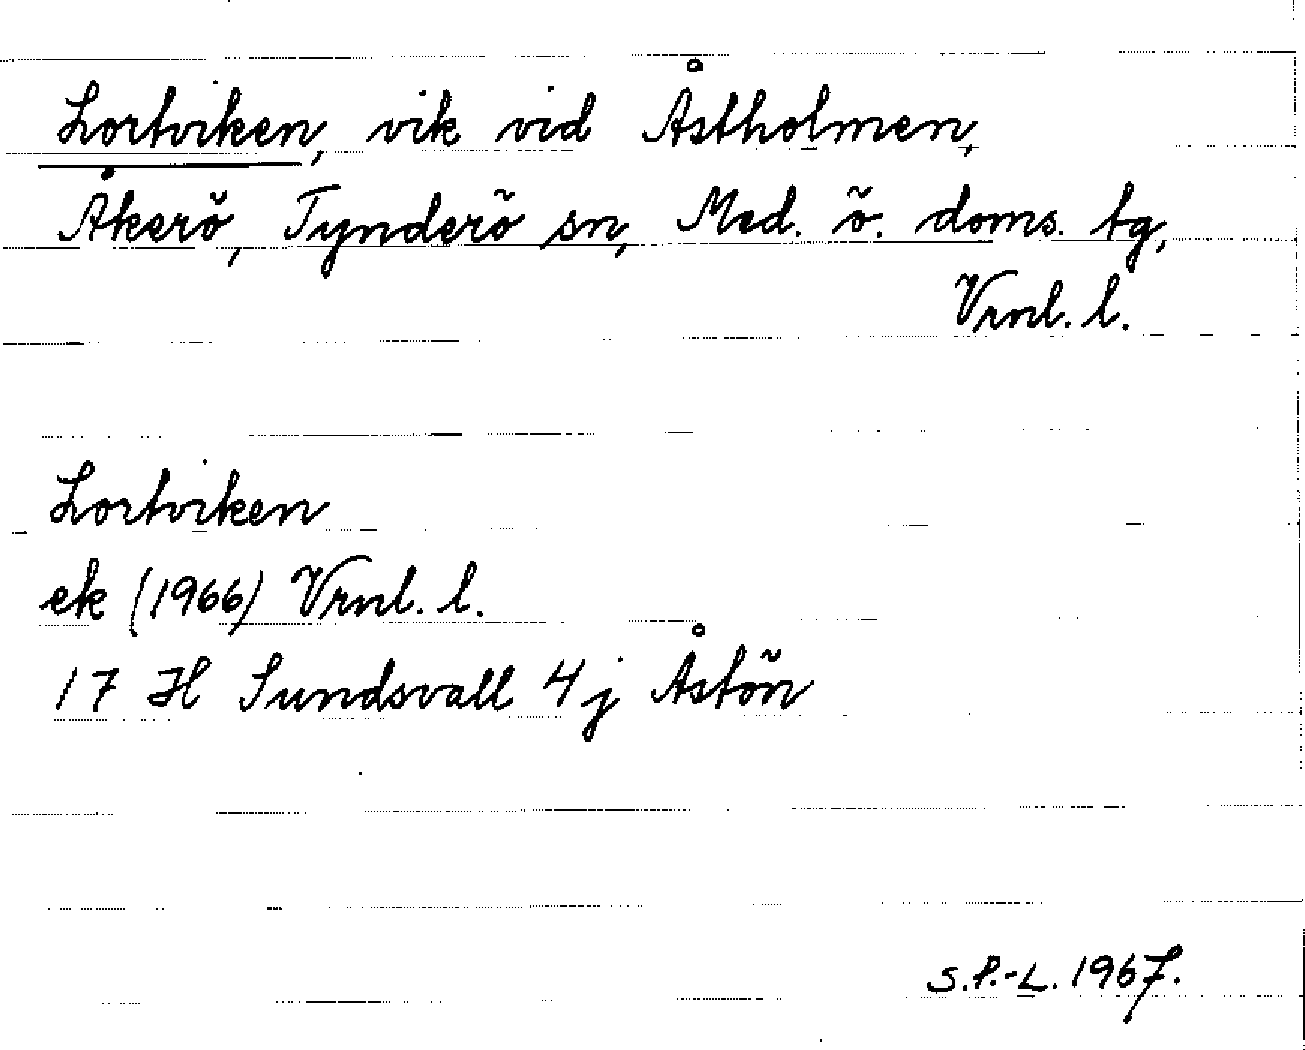 Lortviken, vik vid Åstholmen,
Åkerö, Tynderö sn, Med. ö. doms. tg,
Vrnl. l.
Lortviken
ek (1966) Vrnl. l.
17 H Sundsvall 4 j Åstön
S.P.-L. 1967.